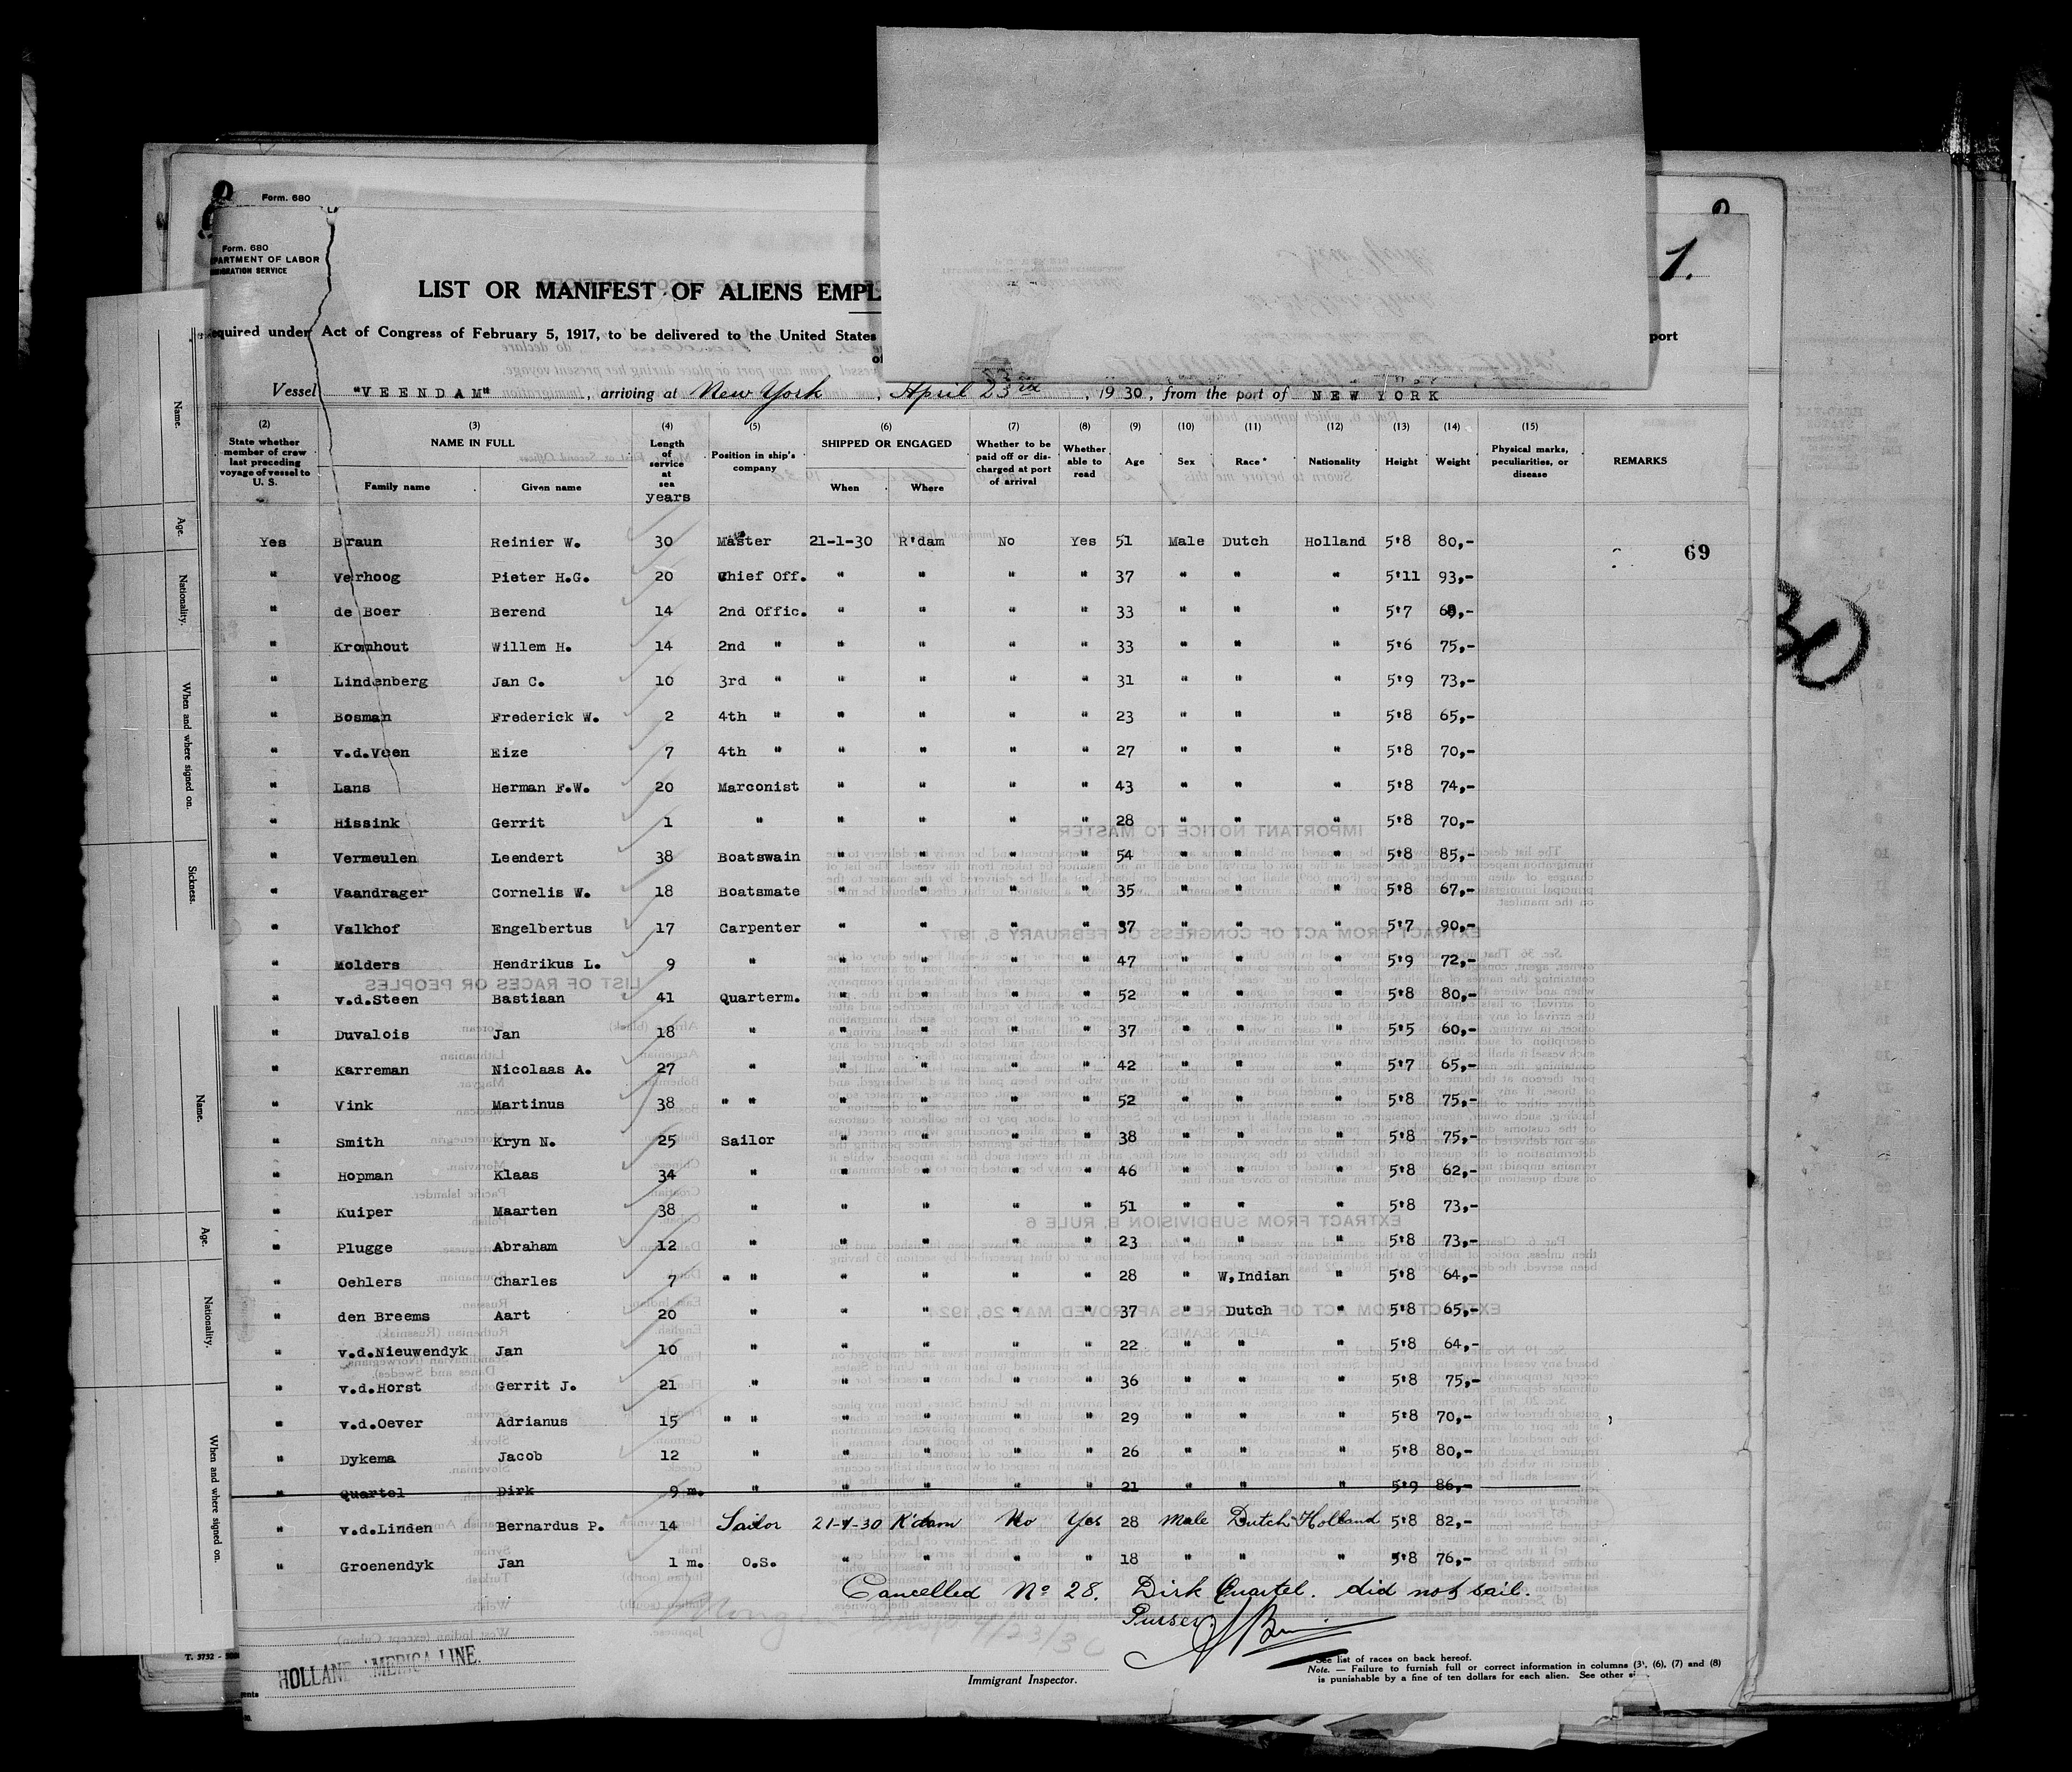 Form. 680
Form. 680
PARTMENT OF LABOR
MIGRATION SERVICE
1.
LIST OR MANIFEST OF ALIENS EMPL
equired under Act of Congress of February 5, 1917, to be delivered to the United States
port
Vessel "VEENDAM", arriving at New York, April 23rd, 1930, from the port of NEW YORK
(2) (3) (4) (5) (6) (7) (8) (9) (10) (11) (12) (13) (14) (15)
State whether member of crew last preceding voyage of vessel to U. S. NAME IN FULL Family name Given name Length of service at sea years Position in ship's company SHIPPED OR ENGAGED When Where Whether to be paid off or discharged at port of arrival Whether able to read Age Sex Race* Nationality Height Weight Physical marks, peculiarities, or disease REMARKS
Yes Braun Reinier W. 30 Master 21-1-30 R'dam No Yes 51 Male Dutch Holland 5'8 80,-
69
" Verhoog Pieter H.G. 20 Chief Off. " " " " 37 " " " 5'11 93,-
" de Boer Berend 14 2nd Offic. " " " " 33 " " " 5'7
" Kromhout Willem H. 14 2nd " " " " " 33 " " " 5'6 75,-
" Lindenberg Jan C. 10 3rd " " " " " 31 " " " 5'9 73,-
" Bosman Frederick W. 2 4th " " " " " 23 " " " 5'8 65,-
" v.d.Veen Eize 7 4th " " " " " 27 " " " 5'8 70,-
" Lans Herman F.W. 20 Marconist " " " " 43 " " " 5'8 74,-
" Hissink Gerrit 1 " " " " " 28 " " " 5'8 70,-
" Vermeulen Leendert 38 Boatswain " " " " 54 " " " 5'8 85,-
" Vaandrager Cornelis W. 18 Boatsmate " " " " 35 " " " 5'8 67,-
" Valkhof Engelbertus 17 Carpenter " " " " 37 " " " 5'7 90,-
" Molders Hendrikus L. 9 " " " " " 47 " " " 5'9 72,-
" v.d.Steen Bastiaan 41 Quarterm. " " " " 52 " " " 5'8 80,-
" Duvalois Jan 18 " " " " " 37 " " " 5'5 60,-
" Karreman Nicolaas A. 27 " " " " " 42 " " " 5'7 65,-
" Vink Martinus 38 " " " " " " 52 " " " 5'8 75,-
" Smith Kryn N. 25 Sailor " " " " 38 " " " 5'8 75,-
" Hopman Klaas 34 " " " " " 46 " " " 5'8 62,-
" Kuiper Maarten 38 " " " " " 51 " " " 5'8 73,-
" Plugge Abraham 12 " " " " " 23 " " " 5'8 73,-
" Oehlers Charles 7 " " " " " " 28 " W,Indian " 5'8 64,-
" den Breems Aart 20 " " " " " 37 " Dutch " 5'8 65,-
" v.d.Nieuwendyk Jan 10 " " " " " 22 " " " 5'8 64,-
" v.d.Horst Gerrit J. 21 " " " " " 36 " " " 5'8 75,-
" v.d.Oever Adrianus 15 " " " " " " 29 " " " 5'8 70,-
" Dykema Jacob 12 " " " " " 26 " " " 5'8 80,-
" Quartel Dirk 9 m. " " " " " 21 " " " 5'9 86,-
" v.d.Linden Bernardus P. 14 Sailor 21-1-30 R'dam No Yes 28 Male Dutch Holland 5'8 82,-
" Groenendyk Jan 1 m. O.S. " " " " 18 " " " 5'8 76,-
Cancelled No 28. Dirk Quartel. did not sail.
Purser.
4/23/30
HOLLAND AMERICA LINE.
Immigrant Inspector.
*See list of races on back hereof.
Note. — Failure to furnish full or correct information in columns (3), (6), (7) and (8)
is punishable by a fine of ten dollars for each alien. See other
T. 3732
Name.
Age.
Nationality.
When and where signed on.
Sickness.
Name.
Age.
Nationality.
When and where signed on.
30